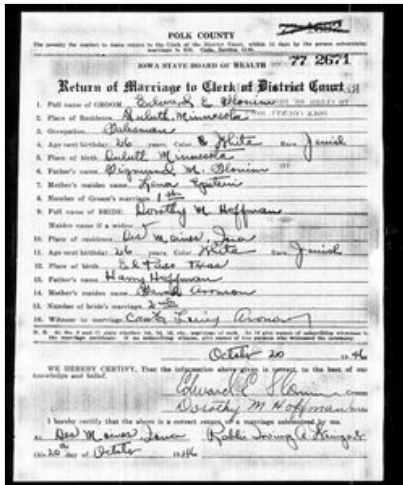 POLK COUNTY
The penalty for neglect to make return to the Clerk of the District Court, within 15 days by the person solemnizing
marriage is $50. Code, Section
IOWA STATE BOARD OF HEALTH
77 2671
Return of Marriage to Clerk of District Court
1. Full name of GROOM Edward E Slonim
2. Place of Residence Duluth, Minnesota
3. Occupation Salesman
4. Age next birthday 26 years. Color White Race Jewish
5. Place of birth Duluth Minnesota
6. Father's name Sigmund M. Slonim
7. Mother's maiden name Lena Epstein
8. Number of Groom's marriage 1st
9. Full name of BRIDE Dorothy M Hoffman
Maiden name if a widow
10. Place of residence Des Moines, Iowa
11. Age next birthday years. Color White Race Jewish
12. Place of birth El Paso Texas
13. Father's name Harry Hoffman
14. Mother's maiden name Aronson
15. Number of bride's marriage
16. Witness to marriage Cantor
October 20 1946
WE HEREBY CERTIFY, That the information above given is correct, to the best of our
knowledge and belief.
Edward E Slonim Groom
Dorothy M Hoffman Bride
I hereby certify that the above is a correct return of a marriage solemnized by me.
At Des Moines, Iowa Rabbi Irving A
this 20 day of October 1946